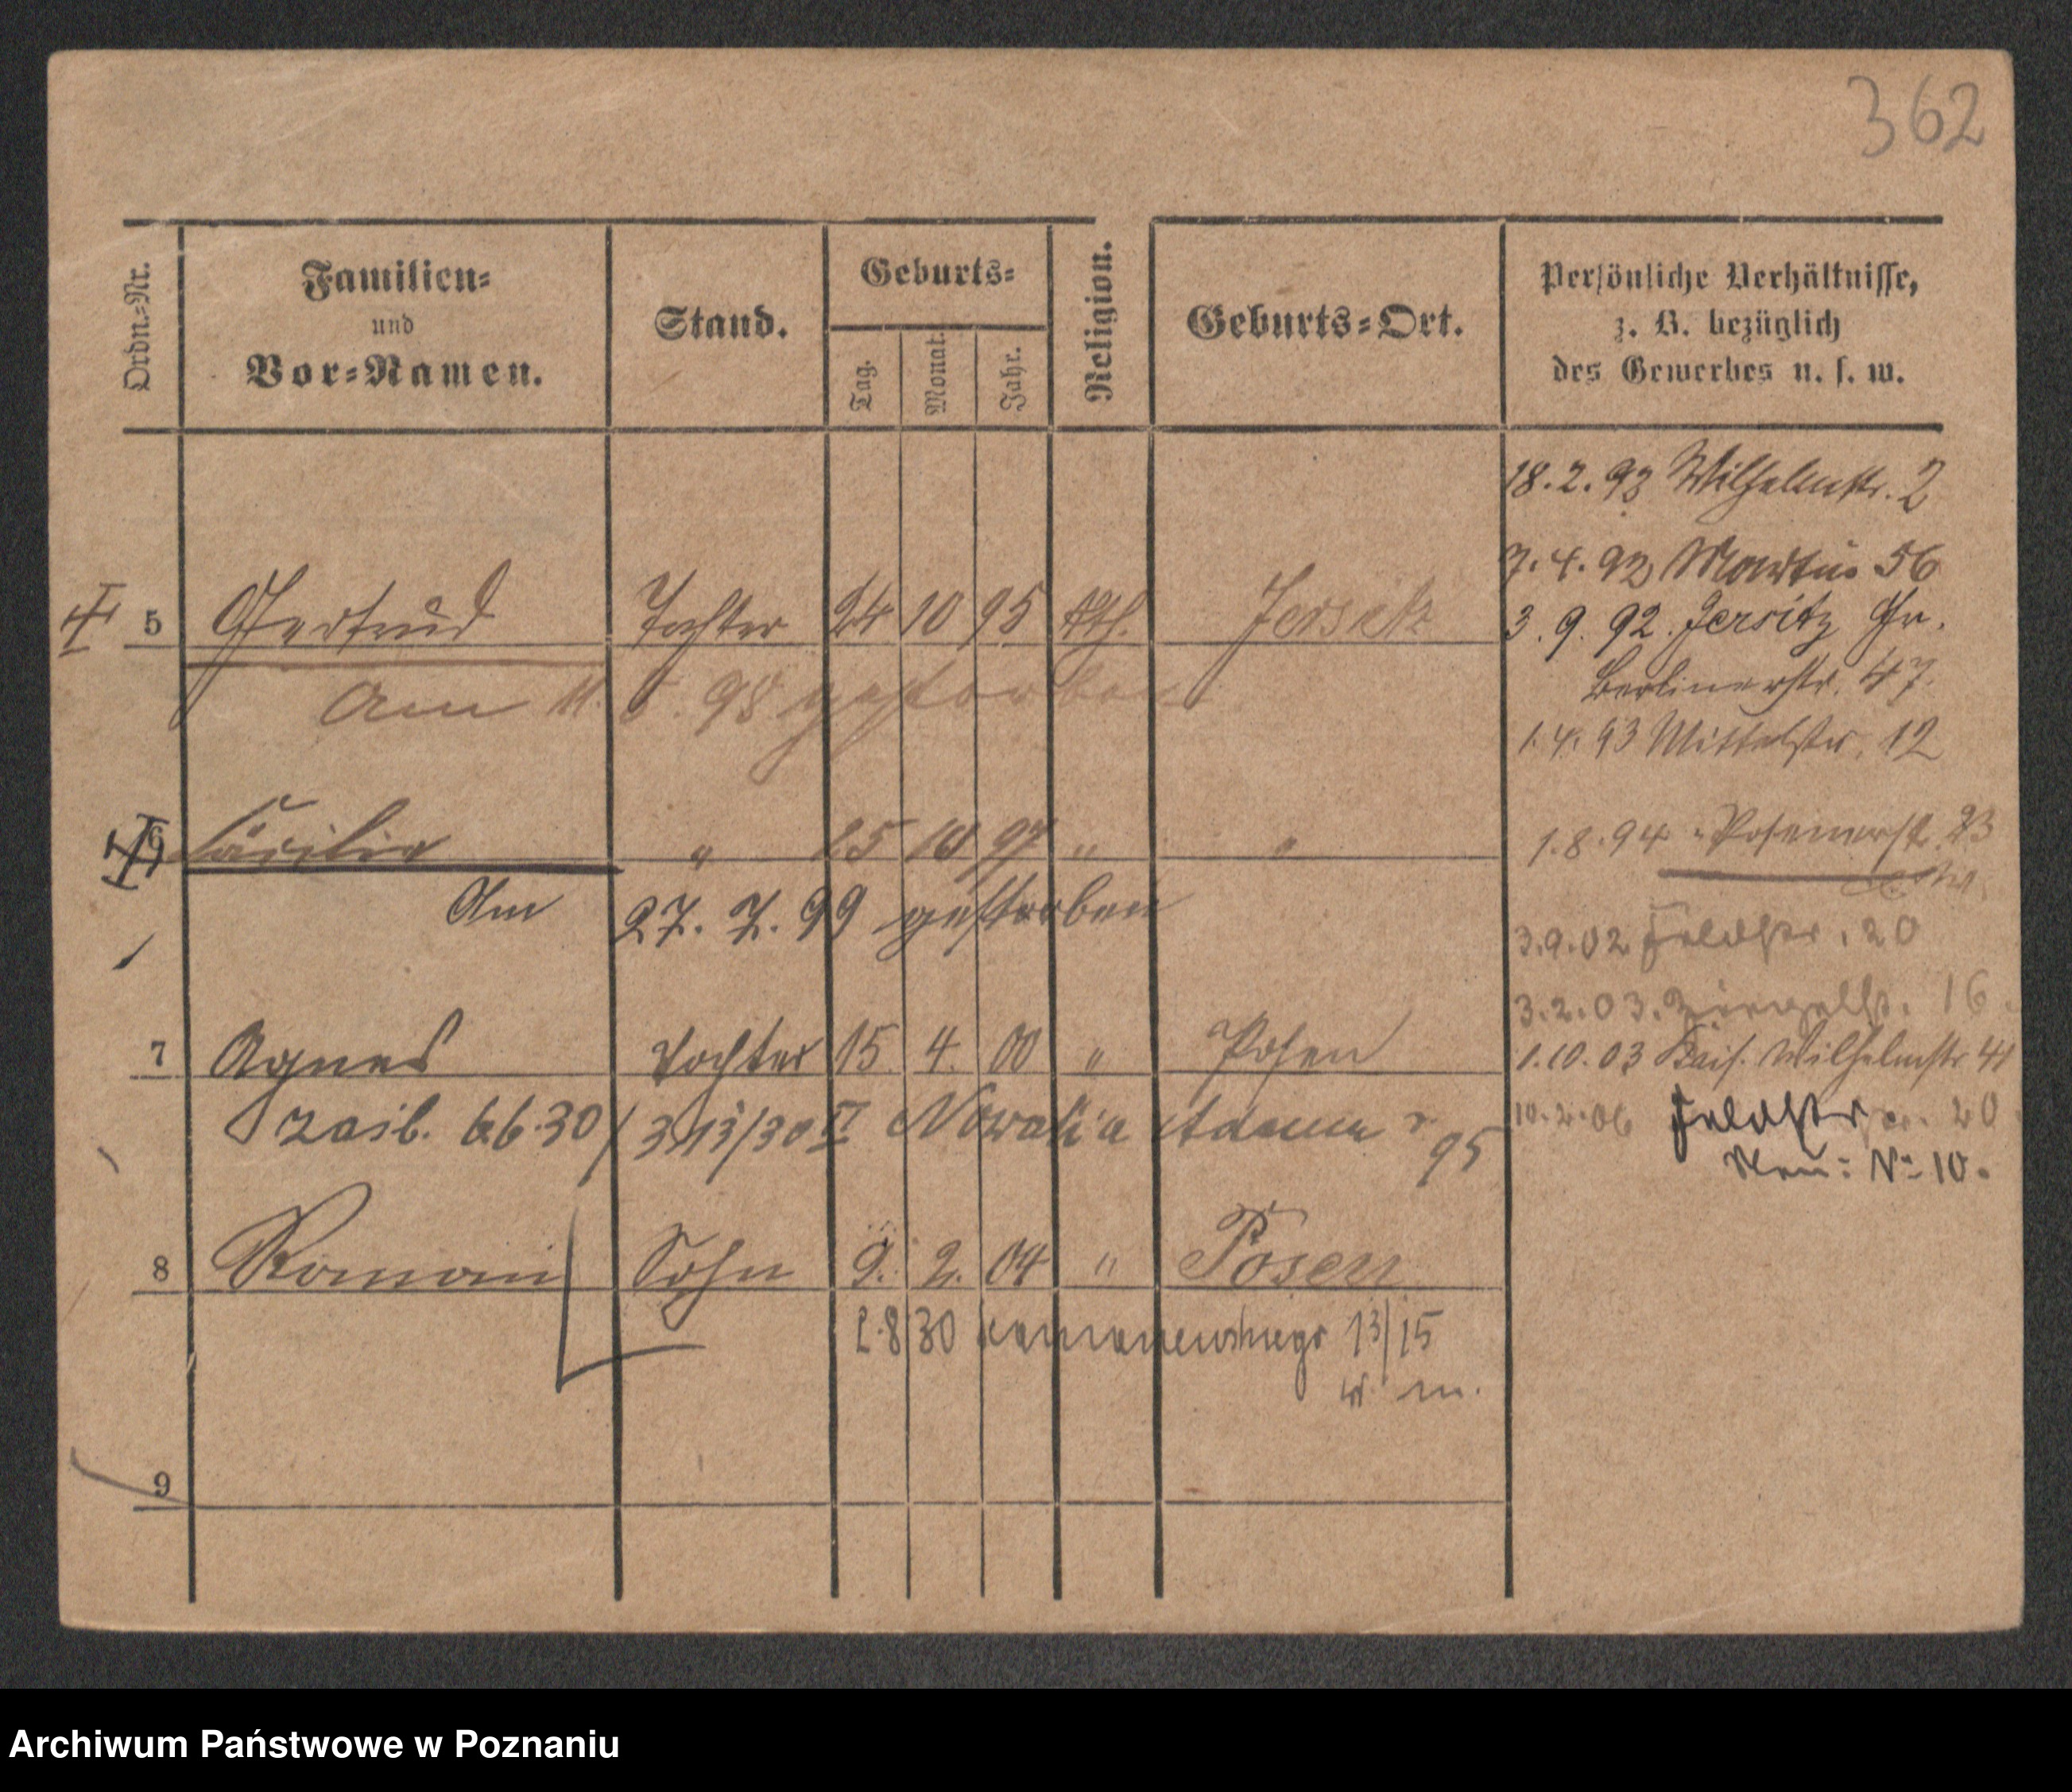 362
Ordn.=Nr.
Familien=
und
Vor=Namen.
Stand.
Geburts=
Tag.
Monat.
Jahr.
Religion.
Geburts=Ort.
Persönliche Verhältnisse,
z. B. bezüglich
des Gewerbes u. s. w.
18. 2. 92 Wilhelmstr. 2
7. 4. 92 Martin 56
5 Gertrud Tochter 24 10 95 kth.
3. 9. 92. Jersitz Gr.
Berlinerstr. 47.
Am 11. 98 gestorben
1. 4. 93 Mittelstr. 12
6 Cäcilia " 25 10 97 " "
1. 8. 94 Posenerstr. 23
Am 27. 7. 99 gestorben
3. 9. 02 Feldstr. 20
3. 2. 03. 16
7 Agnes Tochter 15. 4. 00 " Posen
1. 10. 03 Kais. Wilhelmstr 41
zaśl. 6.6.30/ 313/30 II Nowak'a Adama r 95
10. 2. 06 Feldstr 20
Neu: No 10.
8 Roman Sohn 9. 2. 04 " Posen
2.8 30 13/15
w. m.
9
Archiwum Państwowe w Poznaniu